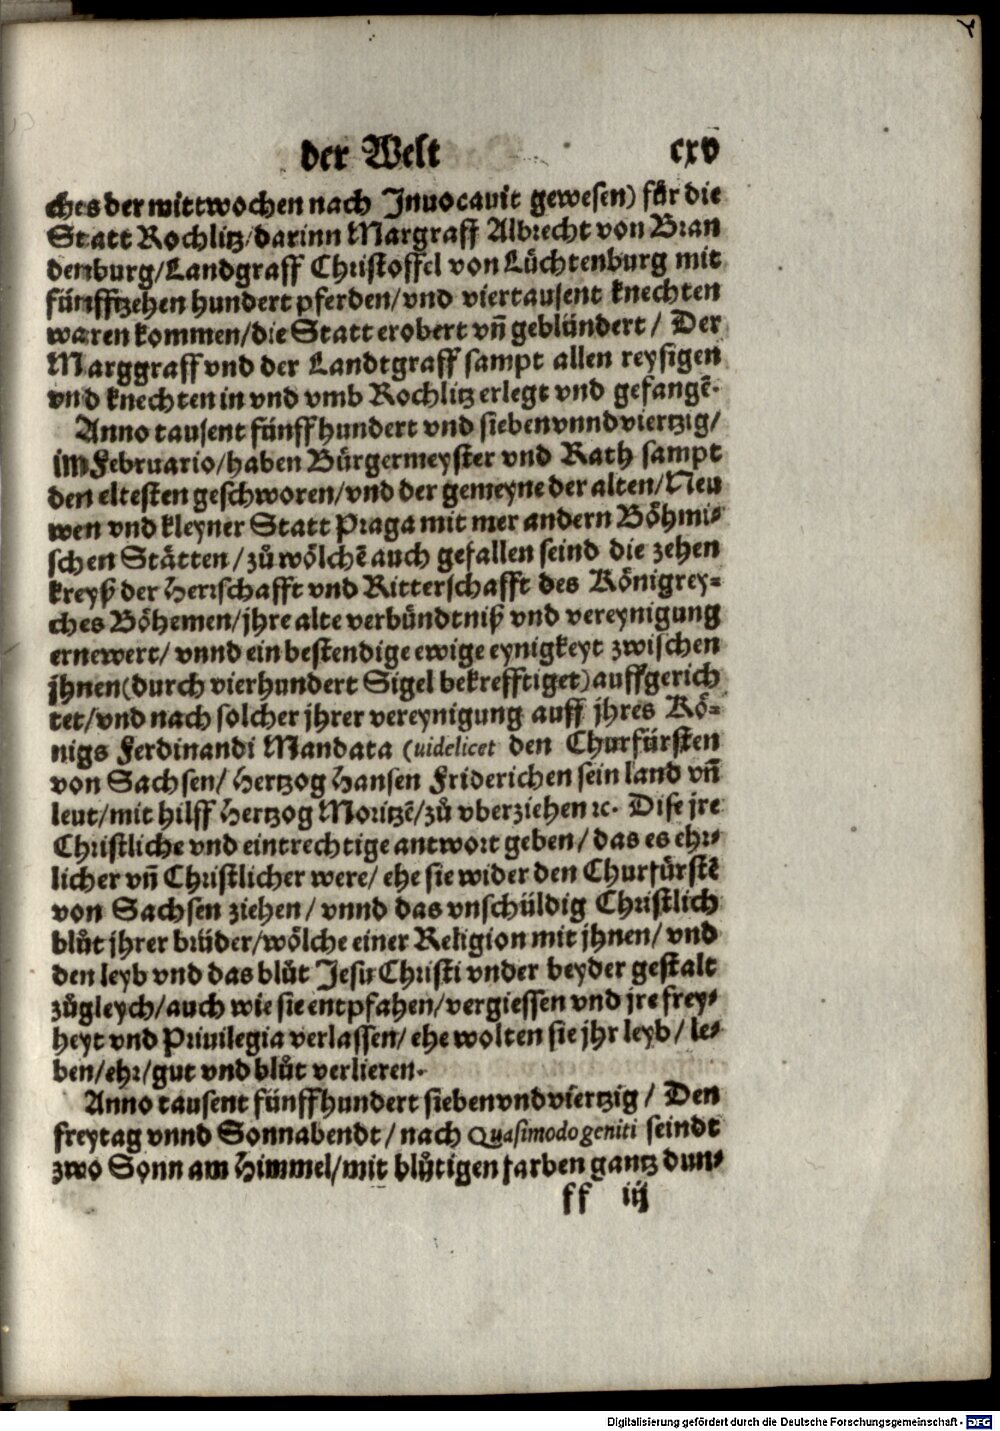 der Welt cxv
ches der mittwochen nach Inuocauit gewesen) für die
Statt Rochlitz/darinn Margraff Albrecht von Bran
denburg/Landgraff Christoffel von Lüchtenburg mit
fünfftzehen hundert pferden/vnd viertausent knechten
waren kommen/die Statt erobert vñ geblündert/ Der
Marggraff vnd der Landtgraff sampt allen reysigen
vnd knechten in vnd vmb Rochlitz erlegt vnd gefangẽ.
Anno tausent fünffhundert vnd siebenvnndviertzig/
im Februario/haben Bürgermeyster vnd Rath sampt
den eltesten geschworen/vnd der gemeyne der alten/Neu
wen vnd kleyner Statt Praga mit mer andern Böhmi⸗
schen Stätten/zů wölchẽ auch gefallen seind die zehen
kreyß der Herrschafft vnd Ritterschafft des Königrey⸗
ches Böhemen/jhre alte verbündtniß vnd vereynigung
ernewert/ vnnd ein bestendige ewige eynigkeyt zwischen
jhnen(durch vierhundert Sigel bekrefftiget) auffgerich
tet/vnd nach solcher jhrer vereynigung auff jhres Kö⸗
nigs Ferdinandi Mandata (uidelicet den Churfürsten
von Sachsen/ Hertzog Hansen Friderichen sein land vñ
leut/mit hilff Hertzog Moritzẽ/zů vberziehen ꝛc. Dise jre
Christliche vnd eintrechtige antwort geben/ das es ehr⸗
licher vñ Christlicher were/ ehe sie wider den Churfürstẽ
von Sachsen ziehen/ vnnd das vnschüldig Christlich
blůt jhrer brüder/wölche einer Religion mit jhnen/ vnd
den leyb vnd das blůt Jesu Christi vnder beyder gestalt
zůgleych/auch wie sie entpfahen/vergiessen vnd jre frey⸗
heyt vnd Priuilegia verlassen/ ehe wolten sie jhr leyb/ le⸗
ben/ehr/gut vnd blůt verlieren.
Anno tausent fünffhundert siebenvndviertzig/ Den
freytag vnnd Sonnabendt/ nach Quasimodogeniti seindt
zwo Sonn am Himmel/mit blůtigen farben gantz dun⸗
ff iij
Digitalisierung gefördert durch die Deutsche Forschungsgemeinschaft - DFG